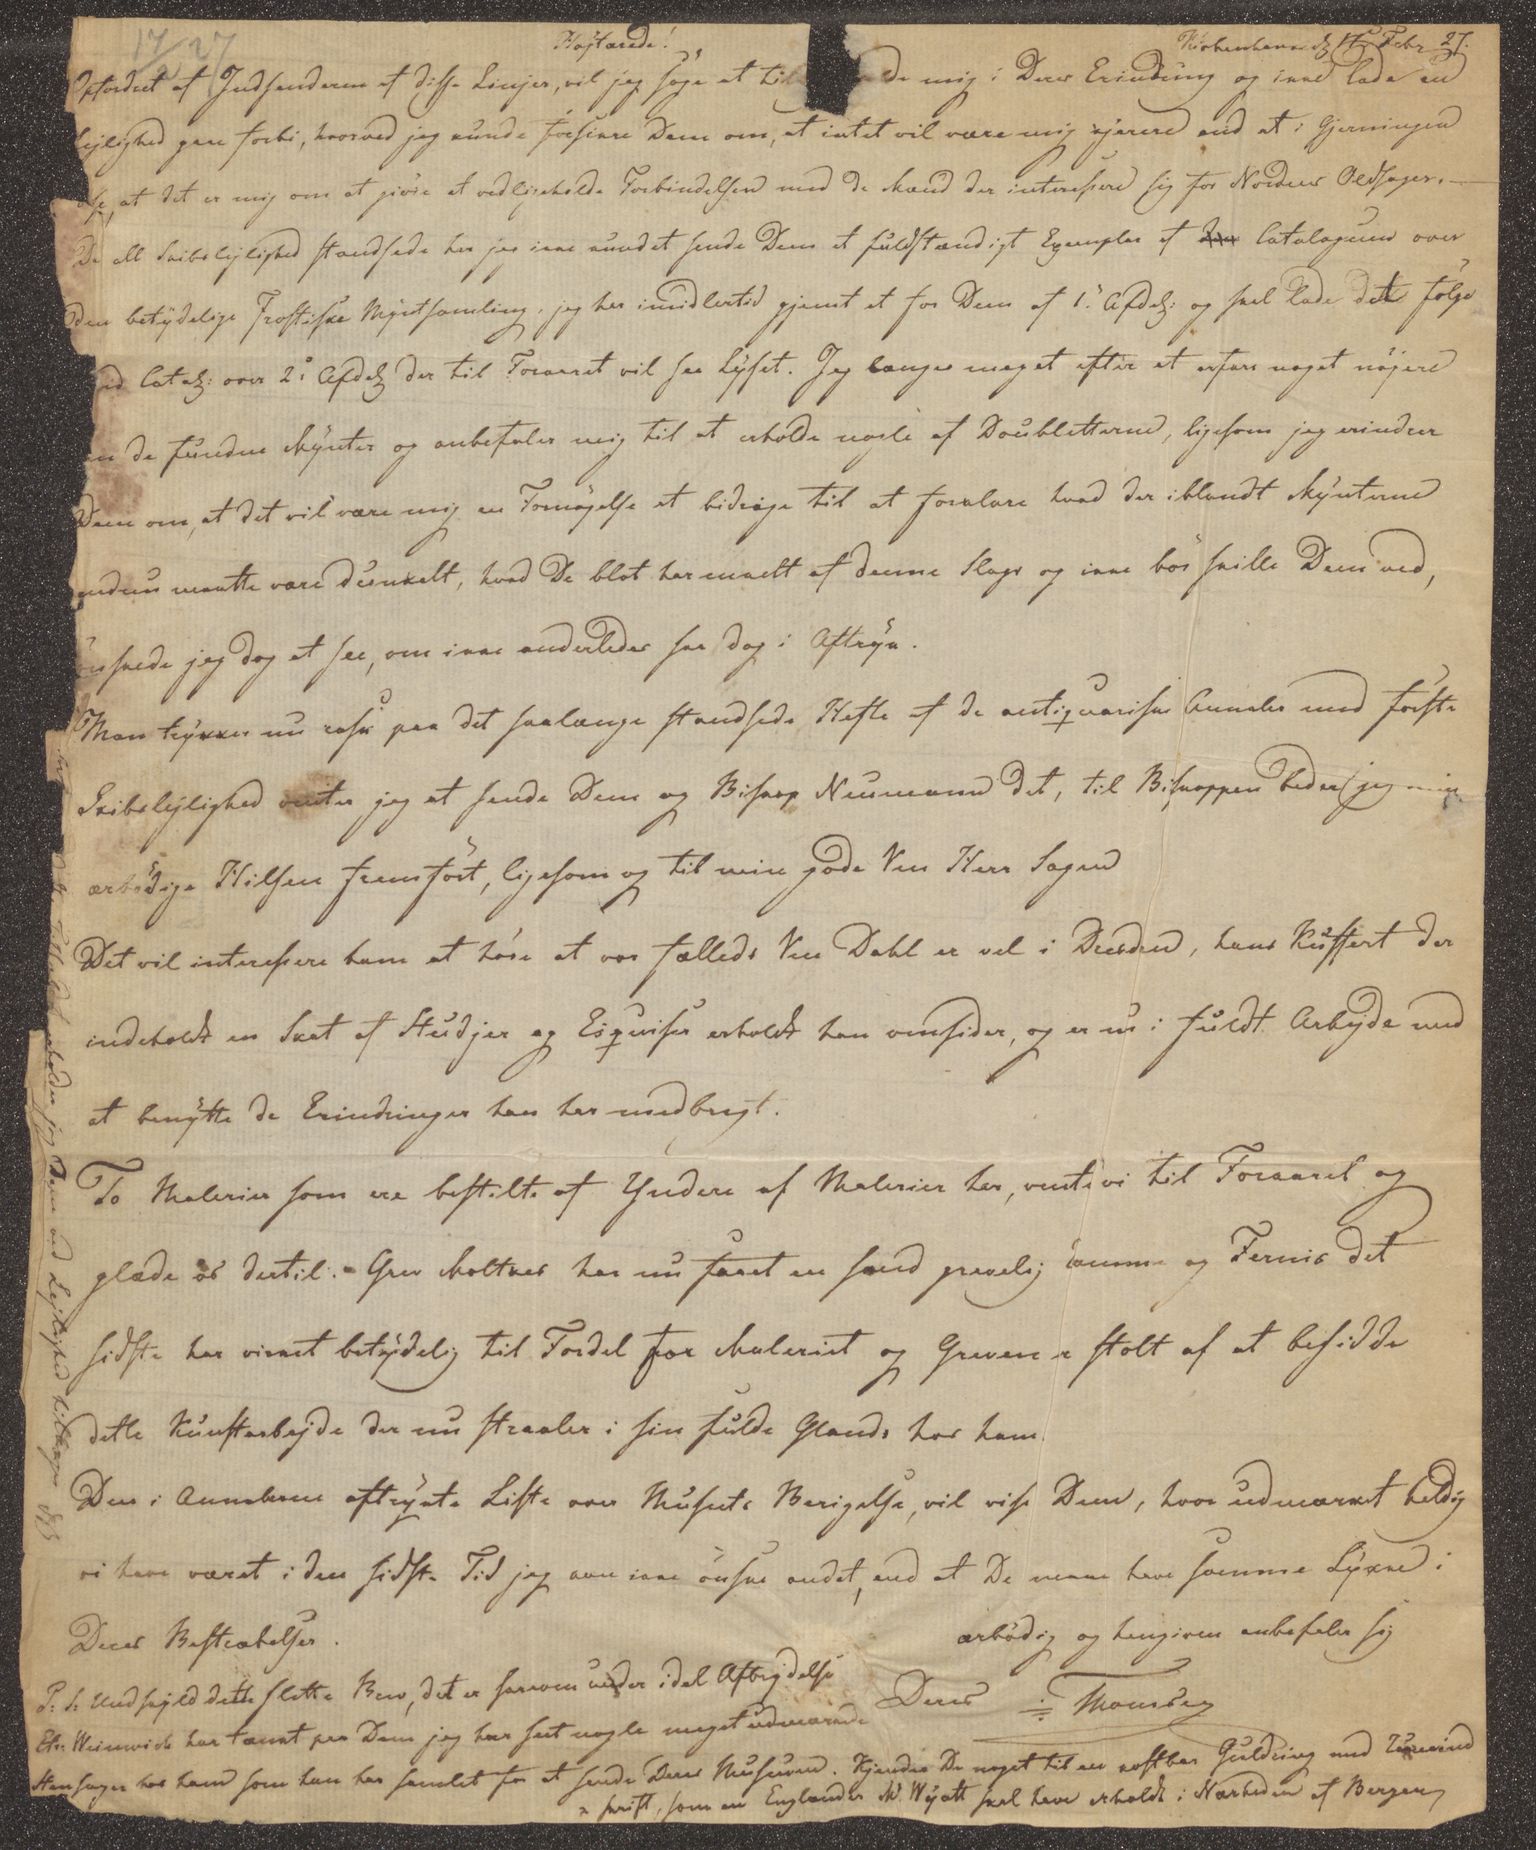 17/2 27
Højtærede! Kiøbenhavn d 17 Febr 27.
Opfordret af Indsenderen af disse Linjer, vil jeg søge at til de mig i Deres Erindring og ikke lade en
Lejlighed gaae forbi, hvorved jeg kunde forsikre Dem om, at intet vil være mig kjærere end at i Gjerningen
vise, at det er mig om at gjöre at vedligeholde Forbindelsen med de Mænd der interessere sig for Nordens Oldsager.
Da all Skibslejlighed standsede har jeg ikke kundet sende Dem et fuldstændigt Exemplar af Catalogerne over
den betydelige Frostiske Myntsamling, jeg har imidlertid gjemt et for Dem af 1. Afdel: og skal lade det følge
med Catal: over 2. Afdel der til Foraaret vil see Lyset. Jeg længes meget efter at erfare noget nöjere
om de fundne Mynter og anbefaler mig til at erholde nogle af Doubletterne, ligesom jeg erindrer
Dem om, at det vil være mig en Fornöjelse at bidrage til at forklare hvad der iblandt Mynterne
endnu maatte være dunkelt, hvad De blot har enkelt af denne Slags og ikke bör skille Dem ved,
önskede jeg dog at see, om ikke anderledes saa dog i Aftryk.
Man trykker nu rask paa det saalænge standsede Hefte af de antiquariske Annaler med förste
Skibslejlighed venter jeg at sende Dem og Biskop Neumann det, til Biskoppen beder jeg min
ærbödige Hilsen fremfört, ligesom og til min gode Ven Herr Sagen
Det vil interessere ham at höre at vor fælleds Ven Dahl er vel i Dresden, hans Kuffert der
indeholdt en Skat af Studjer og Esquiser erholdt han omsider, og er nu i fuldt Arbejde med
at benytte de Erindringer han har medbragt.
To Malerier som ere bestilte af Yndere af Malerier her, vente vi til Foraaret og
glæde os dertil. Grev Moltkes har nu faaet en sand grevelig Ramme og Fernis det
sidste har virket betydelig til Fordel for Maleriet og Greven er stolt af at besidde
dette Kunstarbejde der nu straaler i sin fulde Glands hos ham
Den i Annalerne aftrykte Liste over Museets Berigelse, vil vise Dem, hvor udmærket heldig
vi have været i den sidste Tid jeg kan ikke önske andet, end at De maae have samme Lykke i
Deres Bestræbelser. ærbödig og hengiven anbefaler sig
Deres Thomsen
P. S. Undskyld dette slette Brev, det er skrevet under idel Afbrydelse
Etr: Weinwich har tænkt paa Dem jeg har seet nogle meget udmærkede
Steensager hos ham som han har samlet for at sende Deres Museum. Kjender De noget til en kostbar Guldring med Runeind
skrift, som en Englænder Mr Wyatt skal have erholdt i Nærheden af Bergen
erholder jeg Dem ved Lejlighed tilbage